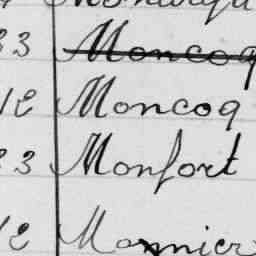 23 Moncoq
12 Moncoq
23 Monfort
12 Monnier